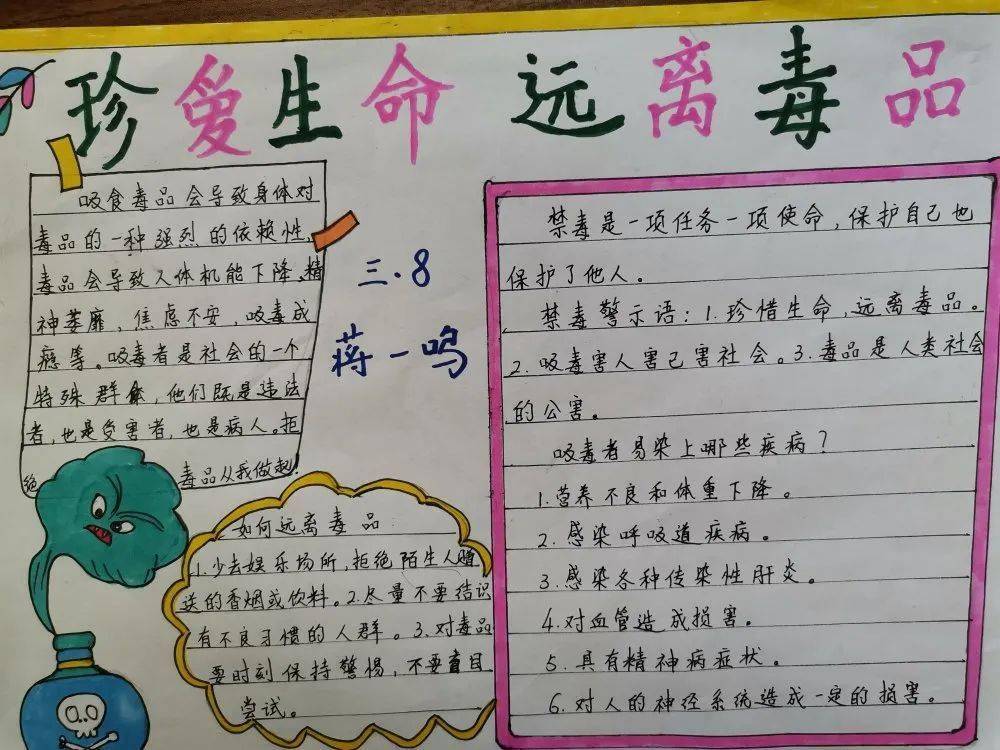 珍爱生命 远离毒品
吸食毒品会导致身体对
毒品的一种强烈的依赖性,
毒品会导致人体机能下降、精
神萎靡,焦虑不安,吸毒成
瘾等。吸毒者是社会的一个
特殊群象,他们既是违法
者,也是受害者,也是病人。拒
绝 毒品从我做起!
三.8
蒋一鸣
如何远离毒品
1.少去娱乐场所,拒绝陌生人赠
送的香烟或饮料。2.尽量不要结识
有不良习惯的人群。3.对毒品
要时刻保持警惕,不要盲目
尝试。
禁毒是一项任务一项使命,保护自己也
保护了他人。
禁毒警示语:1.珍惜生命,远离毒品。
2.吸毒害人害己害社会。3.毒品是人类社会
的公害。
吸毒者易染上哪些疾病?
1.营养不良和体重下降。
2.感染呼吸道疾病。
3.感染各种传染性肝炎。
4.对血管造成损害。
5.具有精神病症状。
6.对人的神经系统造成一定的损害。